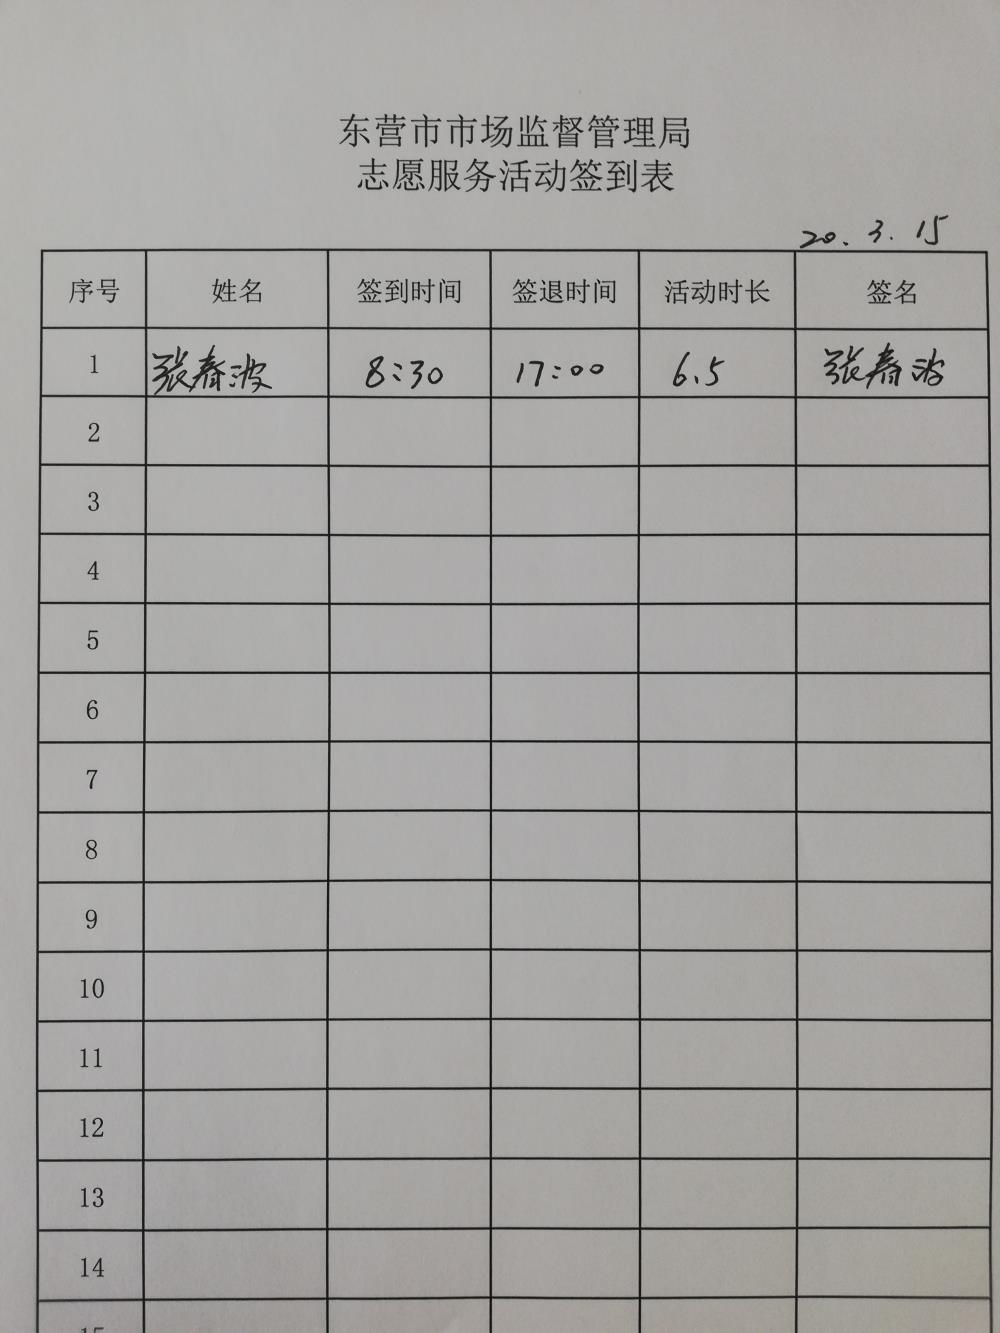 东营市市场监督管理局
志愿服务活动签到表
20.3.15
序号 姓名 签到时间 签退时间 活动时长 签名
1 张春波 8:30 17:00 6.5 张春波
2
3
4
5
6
7
8
9
10
11
12
13
14
15